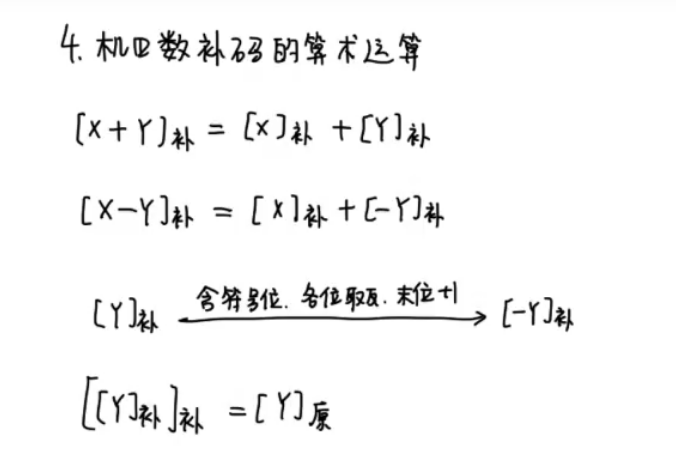 4. 机四数补码的算术运算
[X+Y]补 = [X]补 + [Y]补
[X-Y]补 = [X]补 + [-Y]补
[Y]补 含符号位. 各位取反. 末位+1 → [-Y]补
[[Y]补]补 = [Y]原